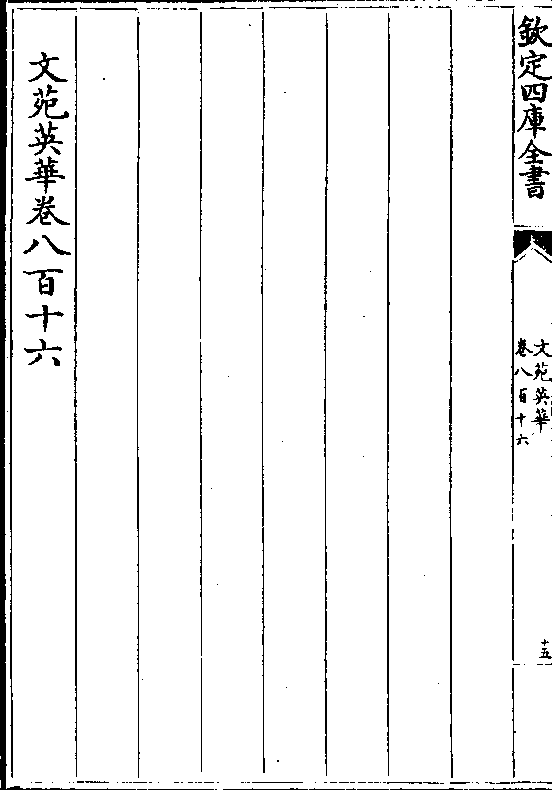 欽定四庫全書
文苑英華
卷八百十六
十五
文苑英華卷八百十六